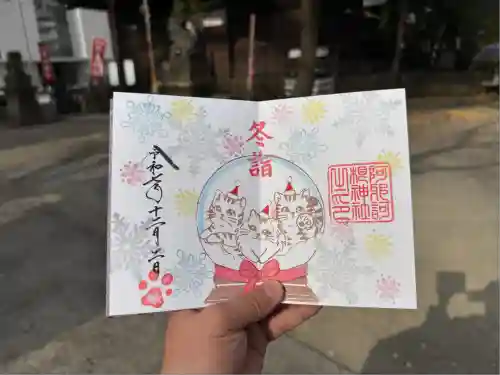 冬詣
阿那訶
根神社
之印
令和七年十二月二日